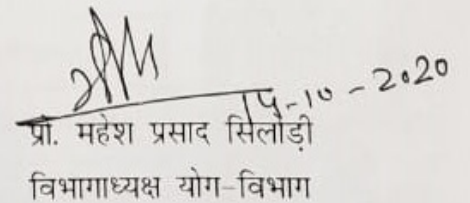 14-10-2020
प्रो. महेश प्रसाद सिलोड़ी
विभागाध्यक्ष योग-विभाग